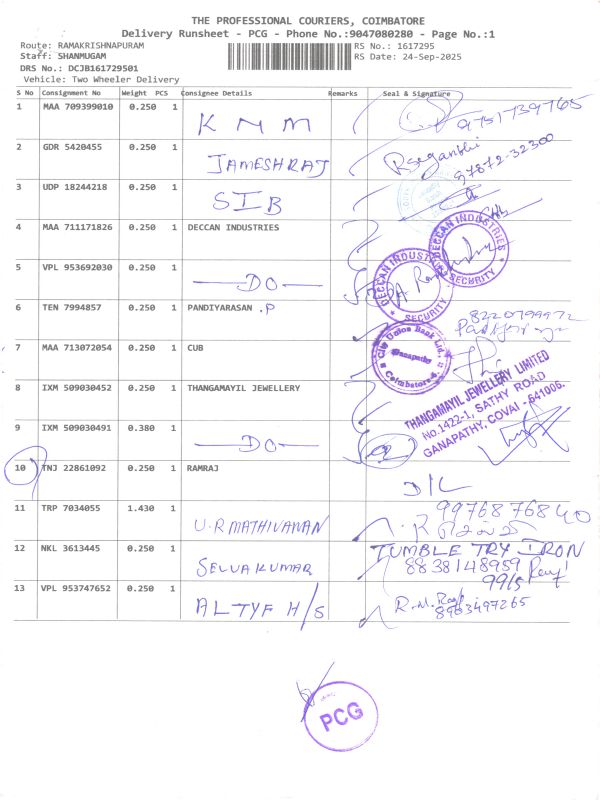 THE PROFESSIONAL COURIERS, COIMBATORE
Delivery Runsheet - PCG - Phone No.:9047080280 - Page No.:1
Route: RAMAKRISHNAPURAM RS No.: 1617295
Staff: SHANMUGAM RS Date: 24-Sep-2025
DRS No.: DCJB161729501
Vehicle: Two Wheeler Delivery
S No Consignment No Weight PCS Consignee Details Remarks Seal & Signature
1 MAA 709399010 0.250 1 KNM 9751739765
2 GDR 5420455 0.250 1 JAMESHRAJ 97872-32300
3 UDP 18244218 0.250 1 SIB
4 MAA 711171826 0.250 1 DECCAN INDUSTRIES DECCAN INDUSTRIES SECURITY
5 VPL 953692030 0.250 1 —DO— DECCAN INDUSTRIES SECURITY
6 TEN 7994857 0.250 1 PANDIYARASAN .P
7 MAA 713072054 0.250 1 CUB City Union Bank Ltd., Ganapathy Coimbatore-6.
8 IXM 509030452 0.250 1 THANGAMAYIL JEWELLERY
THANGAMAYIL JEWELLERY LIMITED
No.1422-1, SATHY ROAD
GANAPATHY, COVAI - 641006.
9 IXM 509030491 0.380 1 —DO—
10 TNJ 22861092 0.250 1 RAMRAJ D/L
11 TRP 7034055 1.430 1 U.R MATHIVANAN 9976876840
12 NKL 3613445 0.250 1 SELVAKUMAR TUMBLE TRY IRON
8838148959
13 VPL 953747652 0.250 1 ALTYF H/S 8903497265
PCG